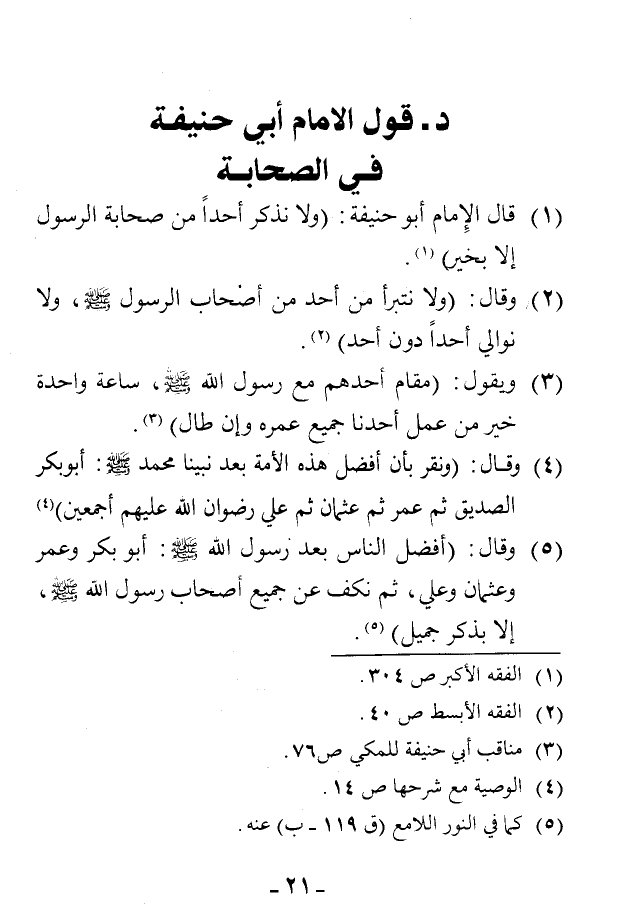 د. قول الامام أبي حنيفة
في الصحابة
(١) قال الإمام أبو حنيفة: (ولا نذكر أحداً من صحابة الرسول
إلا بخير) (١).
(٢) وقال: (ولا نتبرأ من أحد من أصحاب الرسول ﷺ، ولا
نوالي أحداً دون أحد) (٢).
(٣) ويقول: (مقام أحدهم مع رسول الله ﷺ، ساعة واحدة
خير من عمل أحدنا جميع عمره وإن طال) (٣).
(٤) وقال: (ونقر بأن أفضل هذه الأمة بعد نبينا محمد ﷺ: أبوبكر
الصديق ثم عمر ثم عثمان ثم علي رضوان الله عليهم أجمعين)(٤)
(٥) وقال: (أفضل الناس بعد رسول الله ﷺ: أبو بكر وعمر
وعثمان وعلي، ثم نكف عن جميع أصحاب رسول الله ﷺ،
إلا بذكر جميل) (٥).
(١) الفقه الأكبر ص ٣٠٤.
(٢) الفقه الأبسط ص ٤٠.
(٣) مناقب أبي حنيفة للمكي ص٧٦.
(٤) الوصية مع شرحها ص ١٤.
(٥) كما في النور اللامع (ق ١١٩ ـ ب) عنه.
- ٢١ -